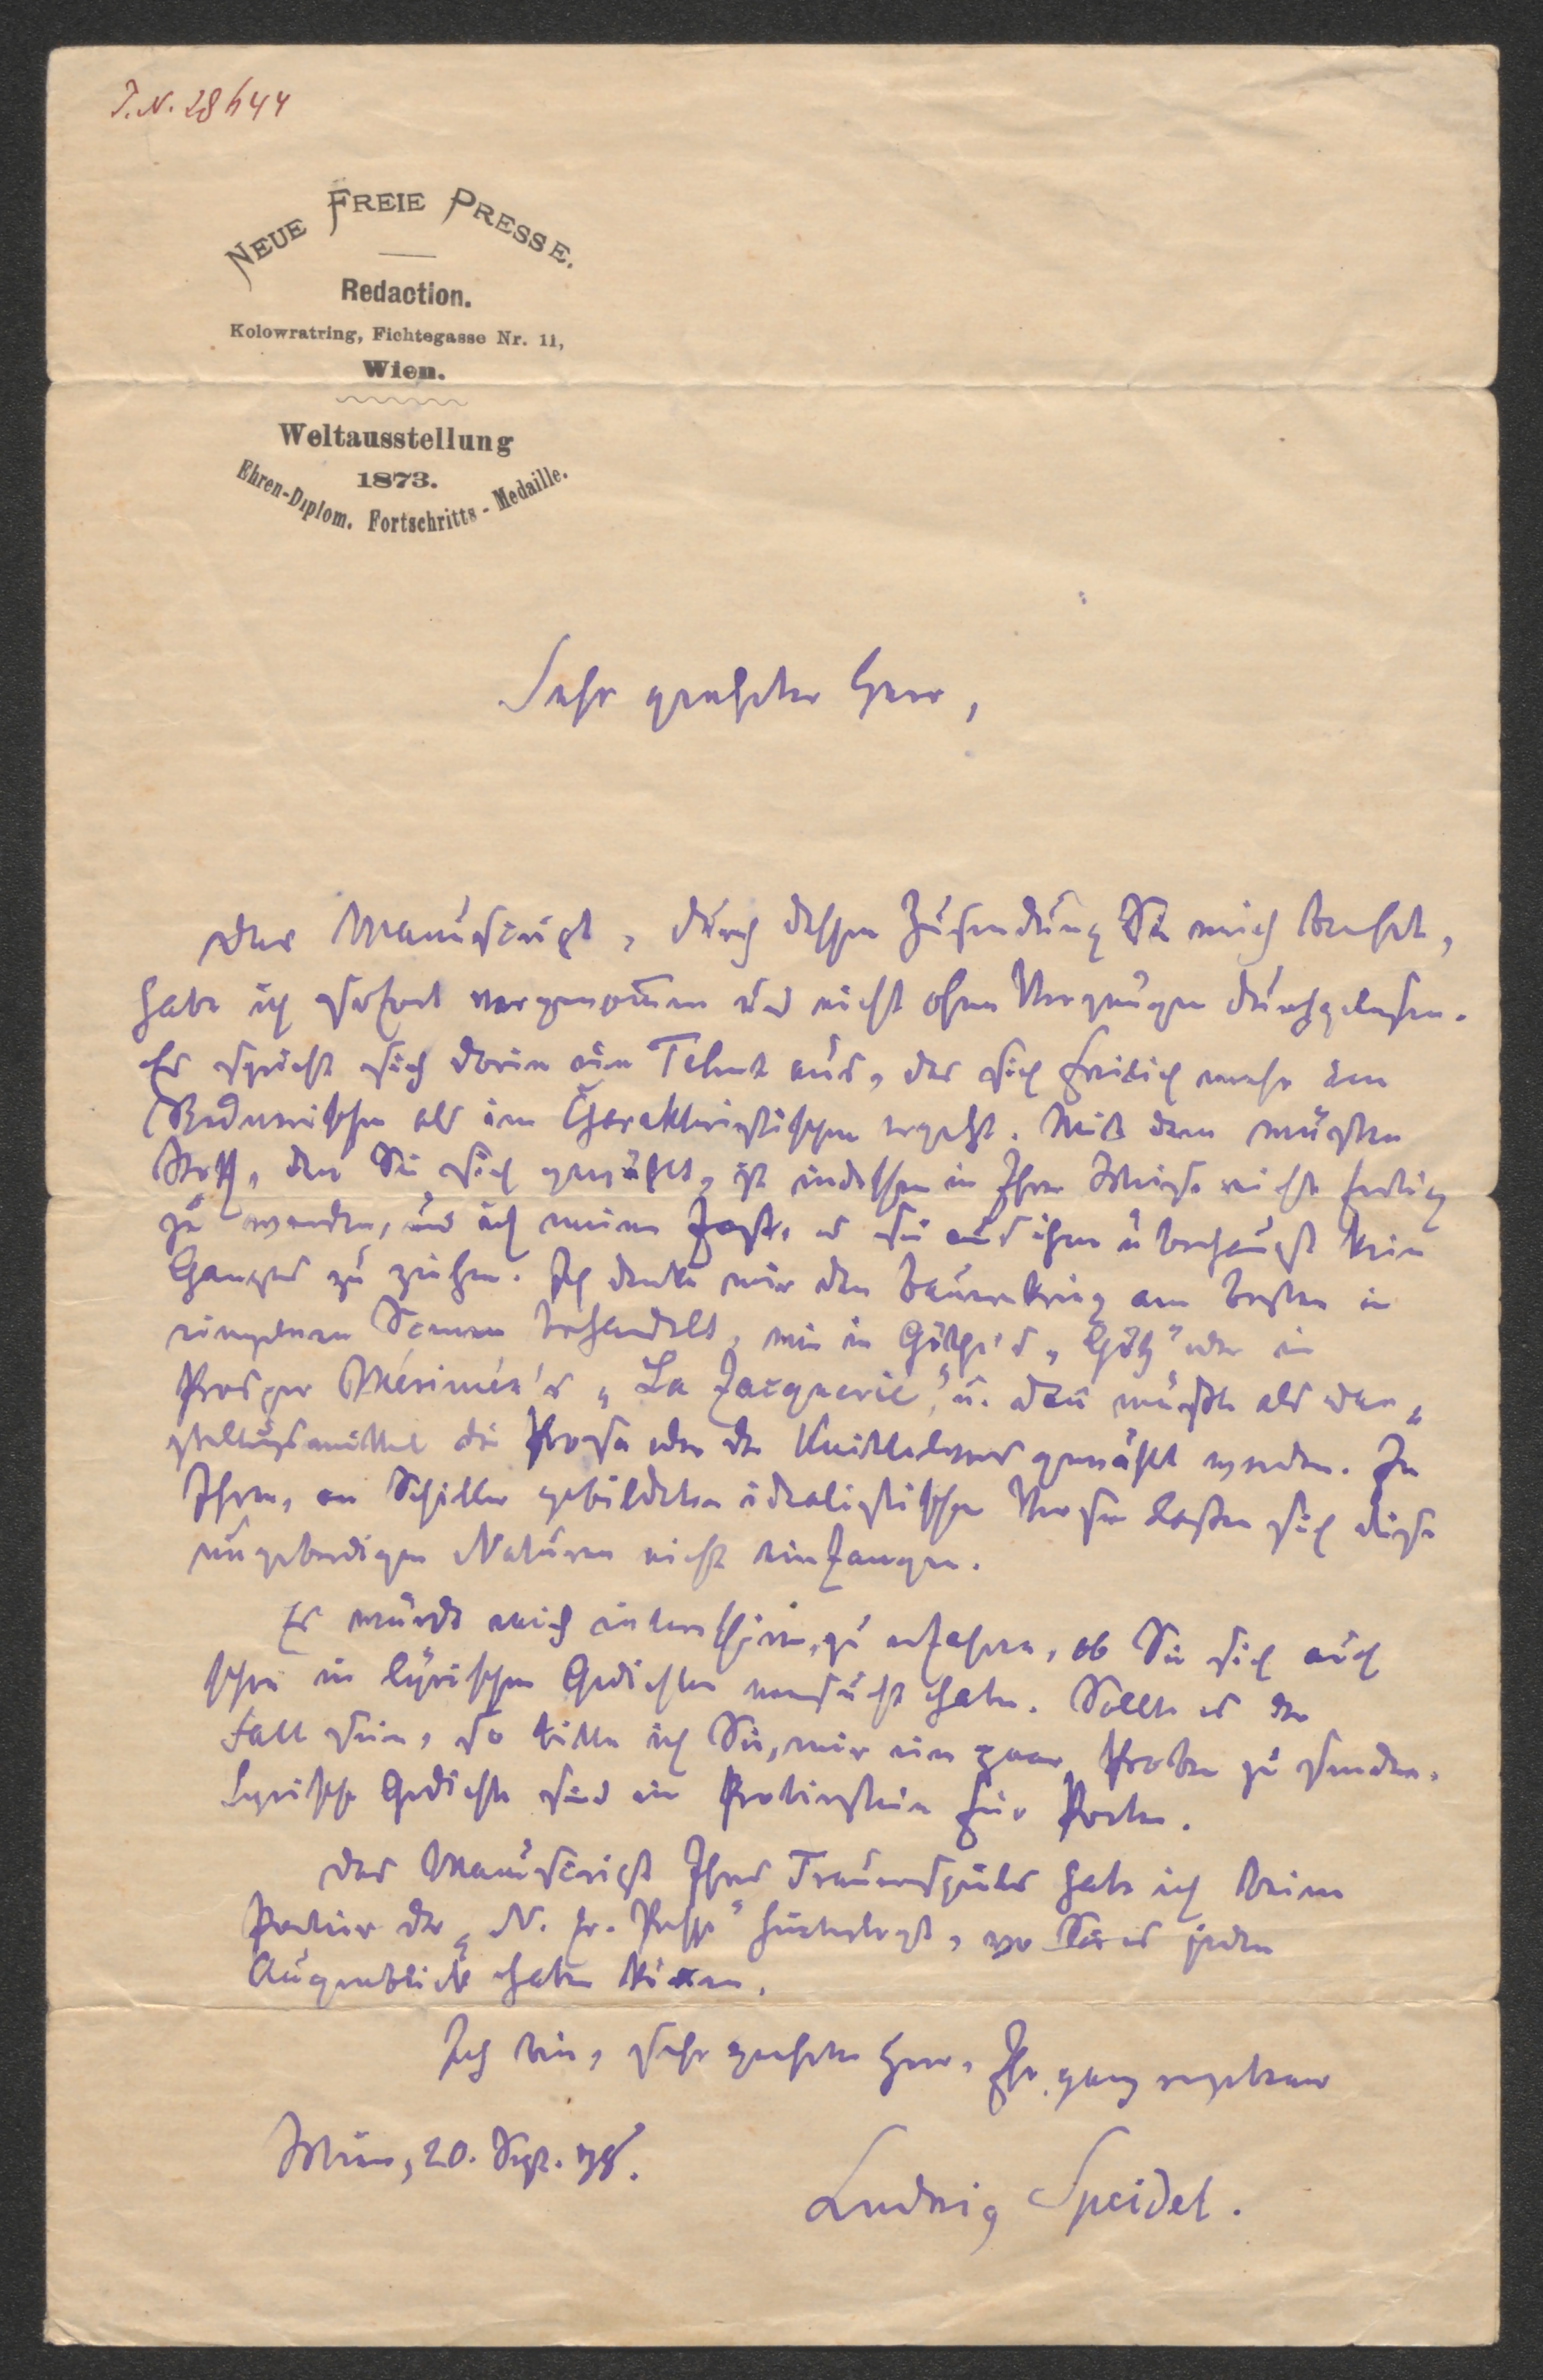 I.N. 28644
NEUE FREIE PRESSE.
Redaction.
Kolowratring, Fichtegasse Nr. 11,
Wien.
Weltausstellung
1873.
Ehren-Diplom. Fortschritts-Medaille.
Sehr geehrter Herr,
das Manuscript, durch dessen Zusendung Sie mich beehrt,
habe ich sofort vorgenommen und nicht ohne Vergnügen durchgelesen.
Es spricht sich darin ein Talent aus, das sich freilich mehr im
Rednerischen als im Charakteristischen ergeht. Mit dem wüsten
Stoff, den Sie sich gewählt, ist indessen in Ihrer Weise nicht fertig
zu werden, und ich meine fast, es sei aus ihm überhaupt kein
Ganzes zu ziehen. Ich denke mir den Bauernkrieg am besten in
einzelnen Scenen behandelt, wie in Göthe's „Götz" oder in
Prosper Mérimée's „La Jacquerie", u. dann müßte als Dar-
stellungsmittel die Prosa oder der Knittelvers gewählt werden. In
Ihren, an Schiller gebildeten idealistischen Versen laßen sich diese
ungeberdigen Naturen nicht einfangen.
Es würde mich interessiren, zu erfahren, ob Sie sich auch
schon in lyrischen Gedichten versucht haben. Sollte es der
Fall sein, so bitte ich Sie, mir ein paar Proben zu senden.
Lyrische Gedichte sind ein Probierstein für Poeten.
Das Manuscript Ihres Trauerspieles habe ich beim
Portier der „N. Fr. Presse" hinterlegt, wo Sie es jeden
Augenblick haben können.
Ich bin, sehr geehrter Herr, Ihr ganz ergebener
Wien, 20. Sept. 78.
Ludwig Speidel.